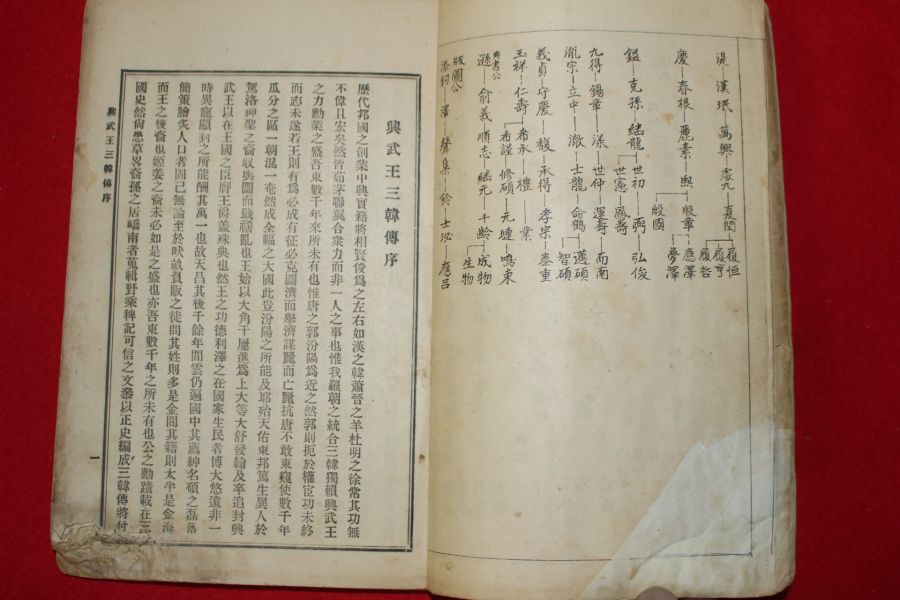 湜 漢珉 萬興 處九 夏閏 履恒
履亨
履哲
慶 春根 麗素 煦 殷章 應澤
夢澤
殷國
鎰 克孫 繼龍 世初 弼 弘俊
世憲 鳳壽
九得 錫章 溁 世仲 運壽 而南
胤宗 立中 澈 士龍 命鶴 邁碩
智碩
義貞 守慶 馥 承得 孝宗 泰重
玉祥 仁壽 希永 禮 業
希謹 修碩 元璉 鳴東
典書公
遜 俞義 順志 繼元 千齡 成物
生物
版圖公
澤 聲集 鈴 士珌 應呂
興武王三韓傳序
歷代邦國之創業中興實籍將相賢俊爲之左右如漢之韓蕭晉之羊杜明之徐常其功無
不偉且宏矣然皆茹茅聯翼合衆力而非一人之事也惟我羅朝之統合三韓獨賴興武王
之力勳業之盛吾東數千年來所未有也惟唐之郭汾陽爲近之然郭則扼於權宦功未終
而志未遂若王則有爲必成有征必克圖濟而舉濟謀麗而亡麗抗唐不敢東窺使數千年
瓜分之區一朝混一奄然成全幅之大國此豈汾陽之所能及耶殆天佑東邦篤生異人於
駕洛神聖之裔收輿圖而戡禍亂也王始以大角干屢進爲上大等大舒發翰及卒追封興
武王以在王國之臣膺王爵蓋殊典也然王之功德利澤之在國家生民者博大悠遠非一
時異寵顯封之所能酬其萬一也故天昌其後千餘年間雲仍遍國中其薦紳名碩之磊落
簡策膾炙人口者固已無論至於畎畝負販之徒問其姓則多是金問其籍則太半是金海
而王之後裔也姬姜之裔未必如是之盛也亦吾東數千年之所未有也公之勳蹟載在三
國史然尙患草畧裔孫之居嶠南者蒐輯野乘稗記可信之文叅以正史編成三韓傳將付
興武王三韓傳序
一